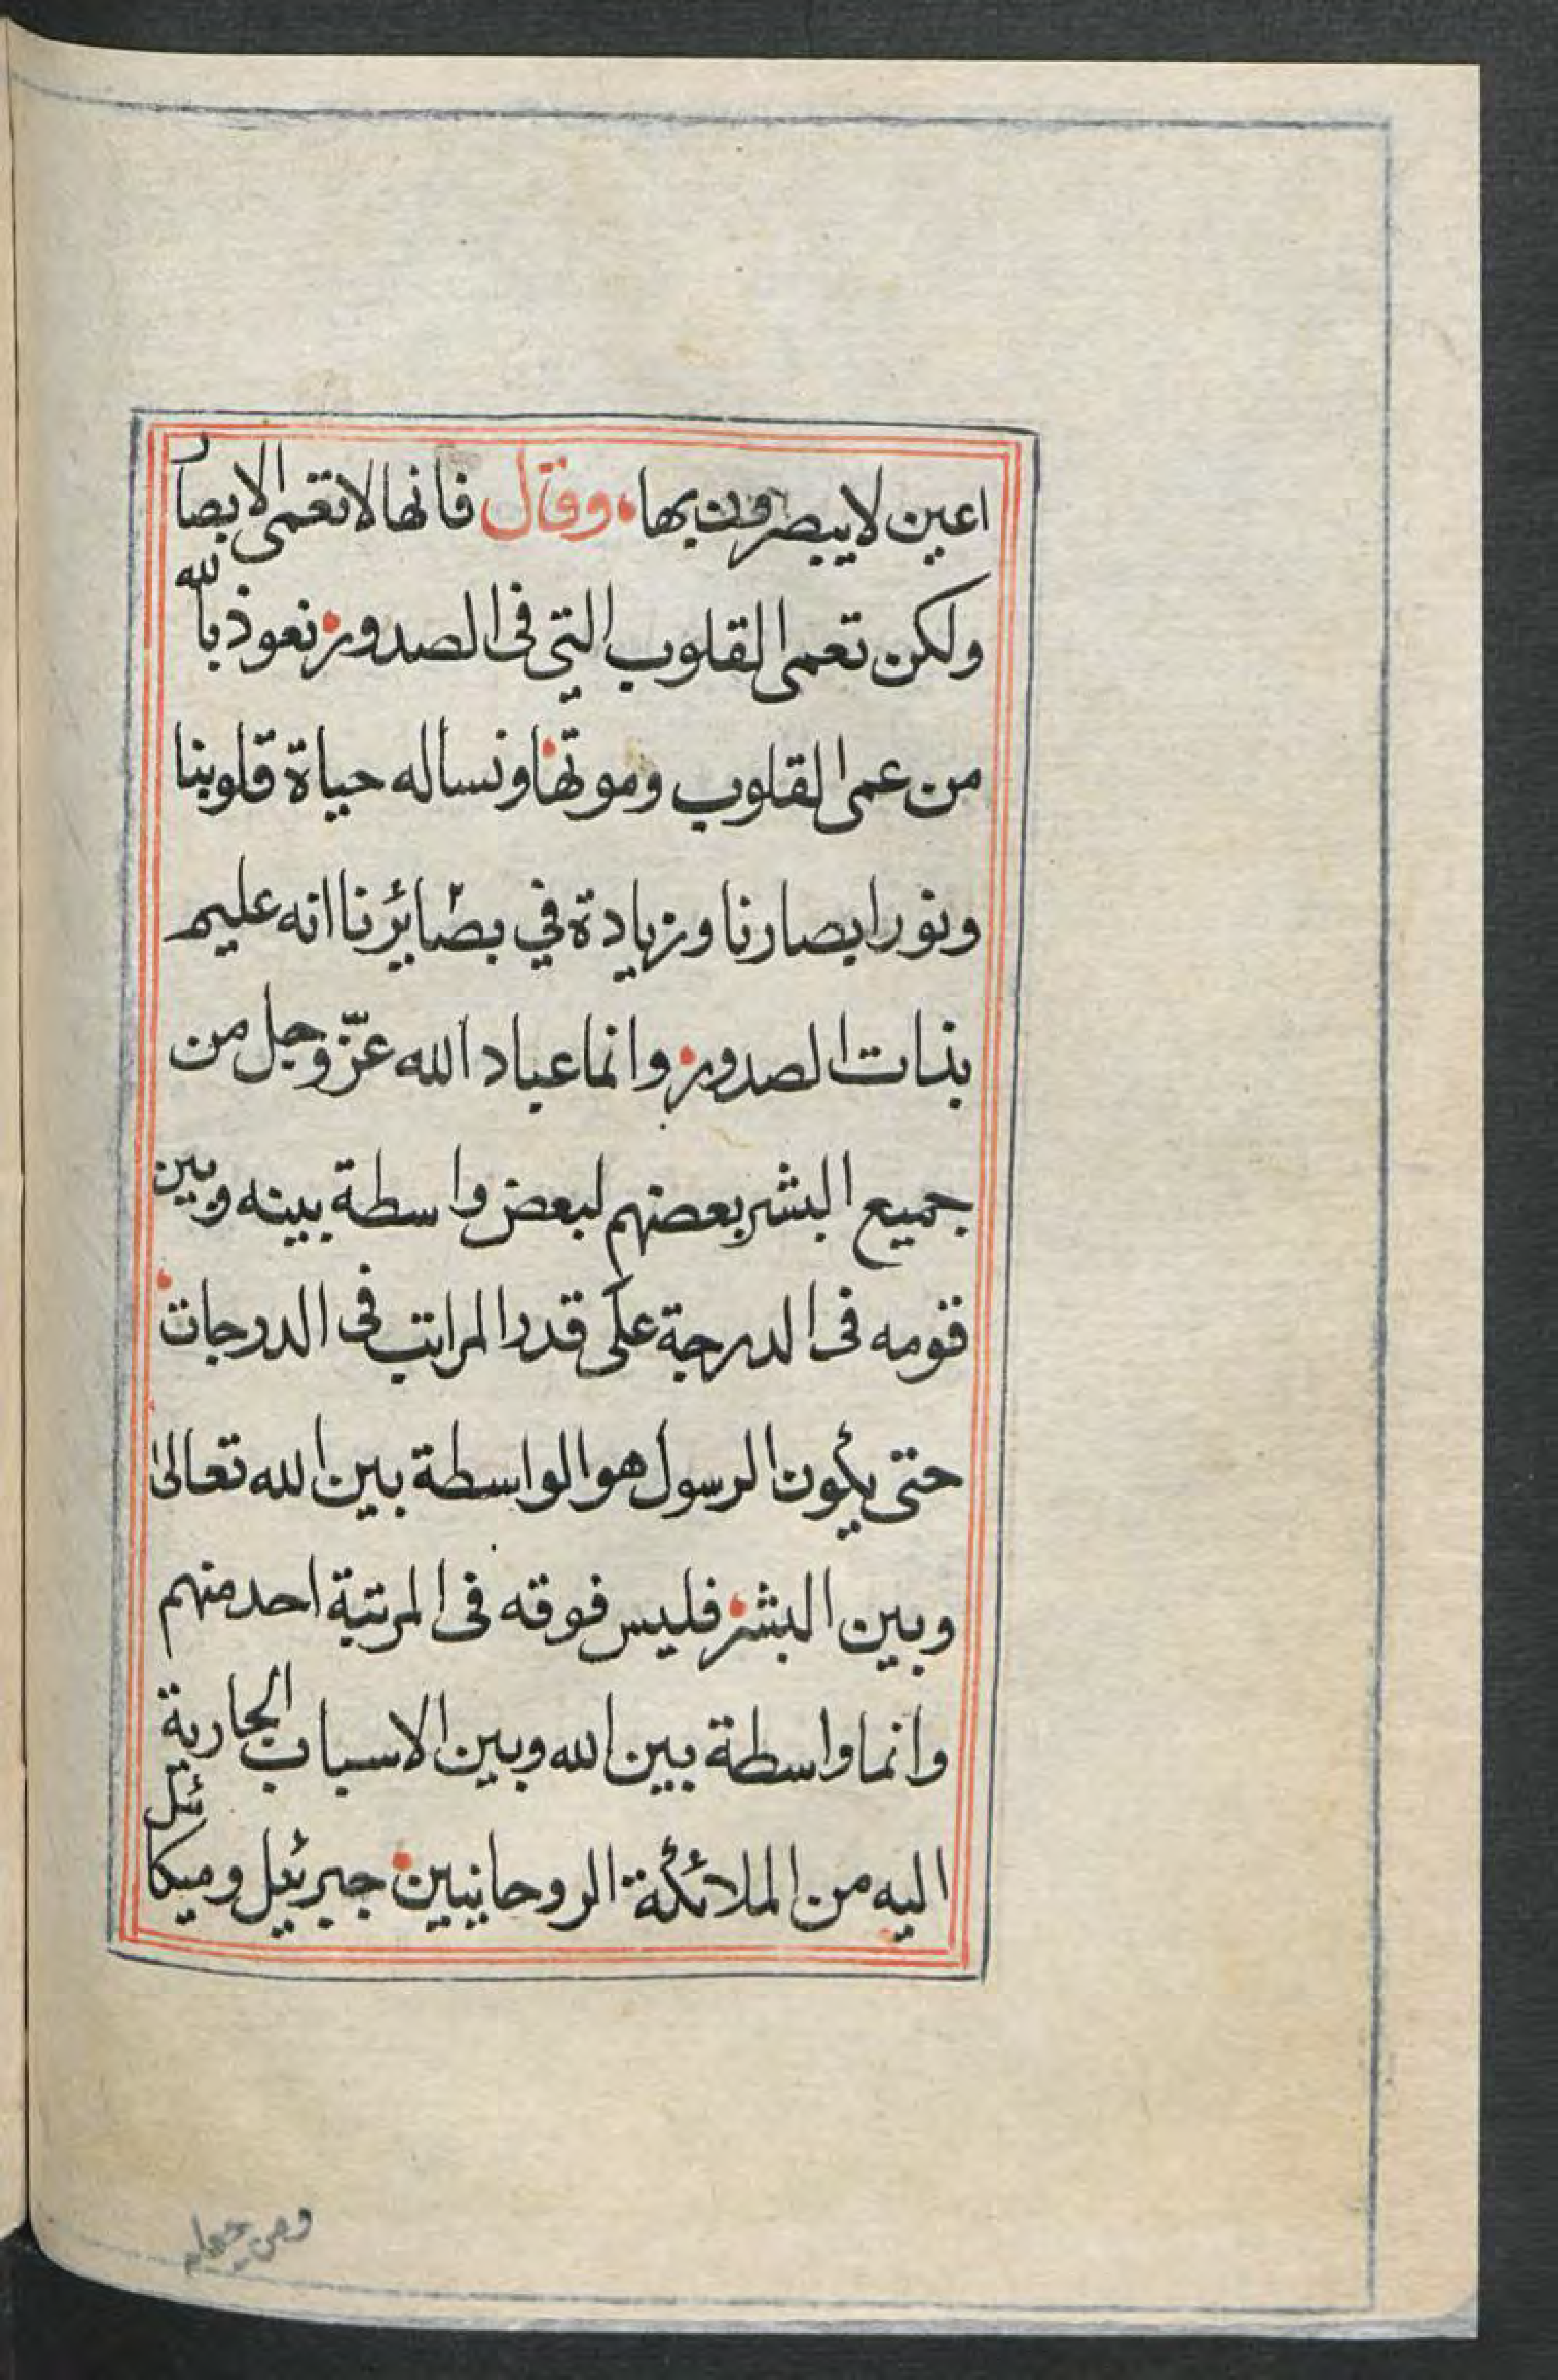 اعين لا يبصرون بها، وقال فانها لا تعمى الابصار
ولكن تعمى القلوب التي فى الصدور نعوذ بالله
من عمى القلوب وموتها ونساله حياة قلوبنا
ونور ابصارنا وزيادة في بصائرنا انه عليم
بذات الصدور وانما عباد الله عزّ وجل من
جميع البشر بعضهم لبعض واسطة بينه وبين
قومه فى الدرجة على قدر المراتب فى الدرجات
حتى يكون الرسول هو الواسطة بين الله تعالى
وبين البشر فليس فوقه فى المرتبة احد منهم
وانما واسطة بين الله وبين الاسباب الجارية
اليه من الملائكة الروحانيين جبرئيل وميكائيل